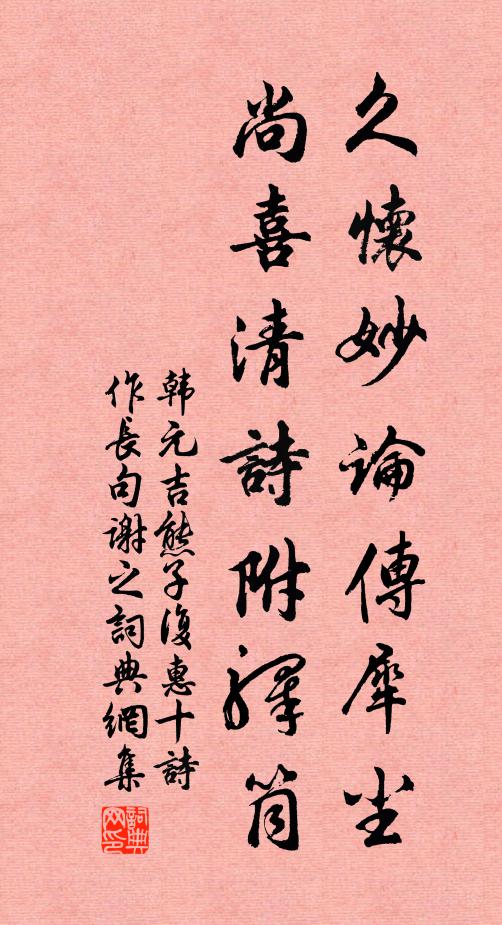 久懷妙論傳犀尘
尚喜清詩附驛筒
韩元吉熊子復惠十詩
作長句謝之詞典網集
詞典
网印